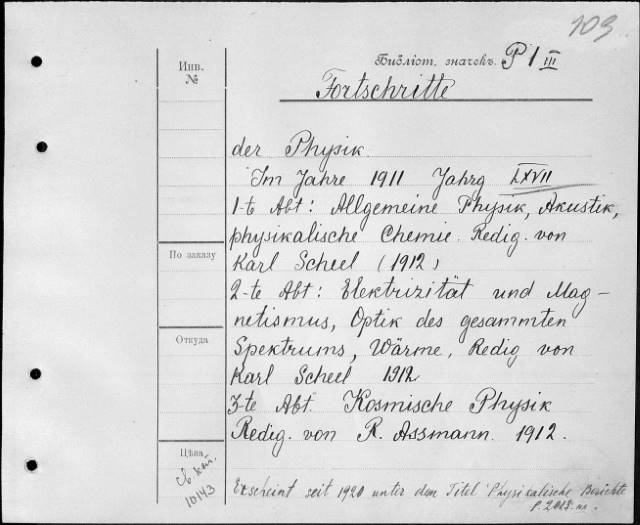 103
Инв.
№
Библіот. значекъ. P 1 III
Fortschritte
der Physik.
Im Jahre 1911 Jahrg LXVII
1-te Abt: Allgemeine Physik, Akustik,
physikalische Chemie. Redig. von
Karl Scheel (1912)
По заказу
2-te Abt: Elektrizität und Mag-
netismus, Optik des gesammten
Откуда
Spektrums, Wärme, Redig von
Karl Scheel 1912
3-te Abt. Kosmische Physik
Redig. von R. Assmann. 1912.
Цѣна
св. кат.
10143
Erscheint seit 1920 unter dem Titel: Physikalische Berichte
P. 2018